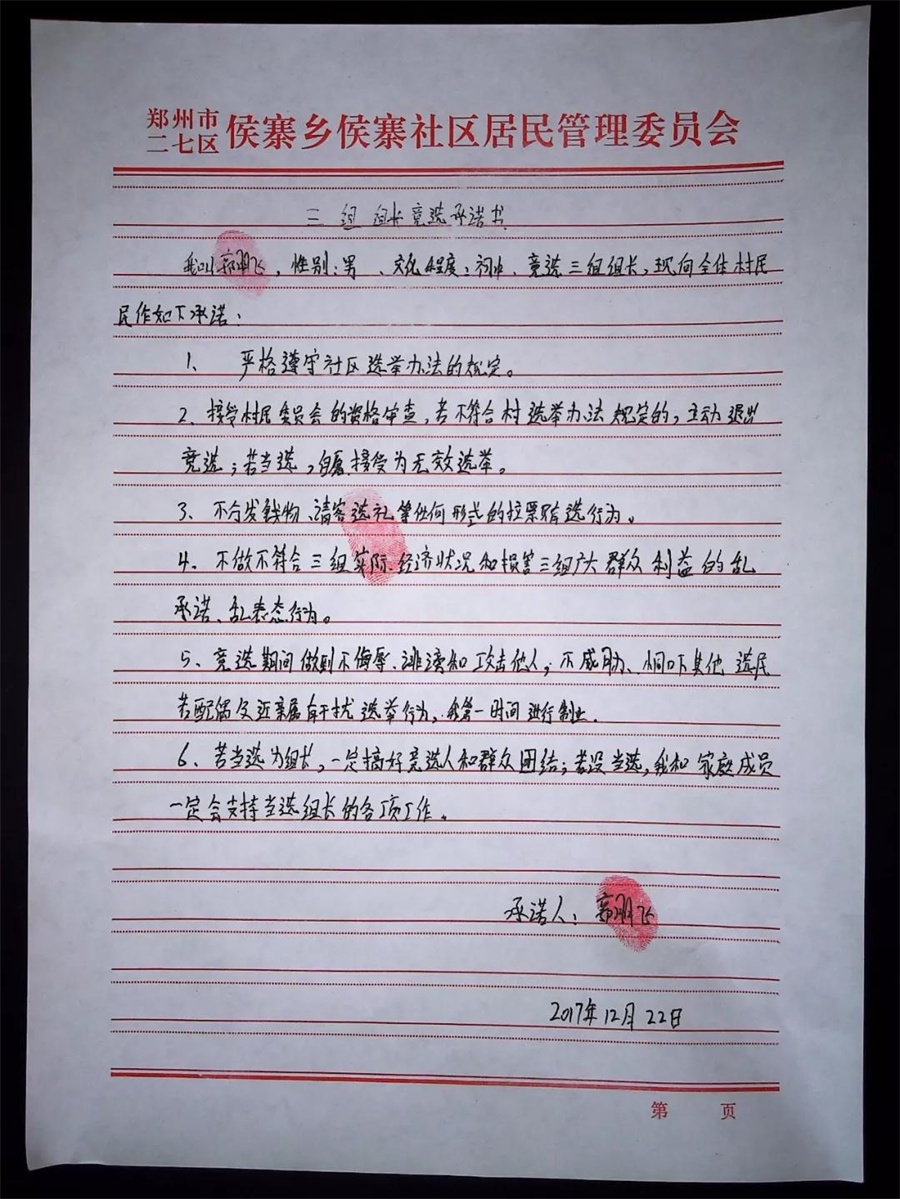 郑州市
二七区 侯寨乡侯寨社区居民管理委员会
三组 组长竞选承诺书
我叫郭朋飞，性别：男、文化程度：初中、竞选三组组长，现向全体村民
民作如下承诺：
1、 严格遵守社区选举办法的规定。
2、接受村民委员会的资格审查，若不符合村选举办法规定的，主动退出
竞选；若当选，自愿接受为无效选举。
3、不分发钱物、请客送礼等任何形式的拉票贿选行为。
4、不做不符合三组实际、经济状况和损害三组广大群众利益的乱
承诺、乱表态行为。
5、竞选期间做到不侮辱、诽谤和攻击他人；不威胁、恫吓其他选民
若配偶及近亲属有干扰选举行为，我第一时间进行制止.
6、若当选为组长，一定搞好竞选人和群众团结；若没当选，我和家庭成员
一定会支持当选组长的各项工作。
承诺人：郭朋飞
2017年12月22日
第 页